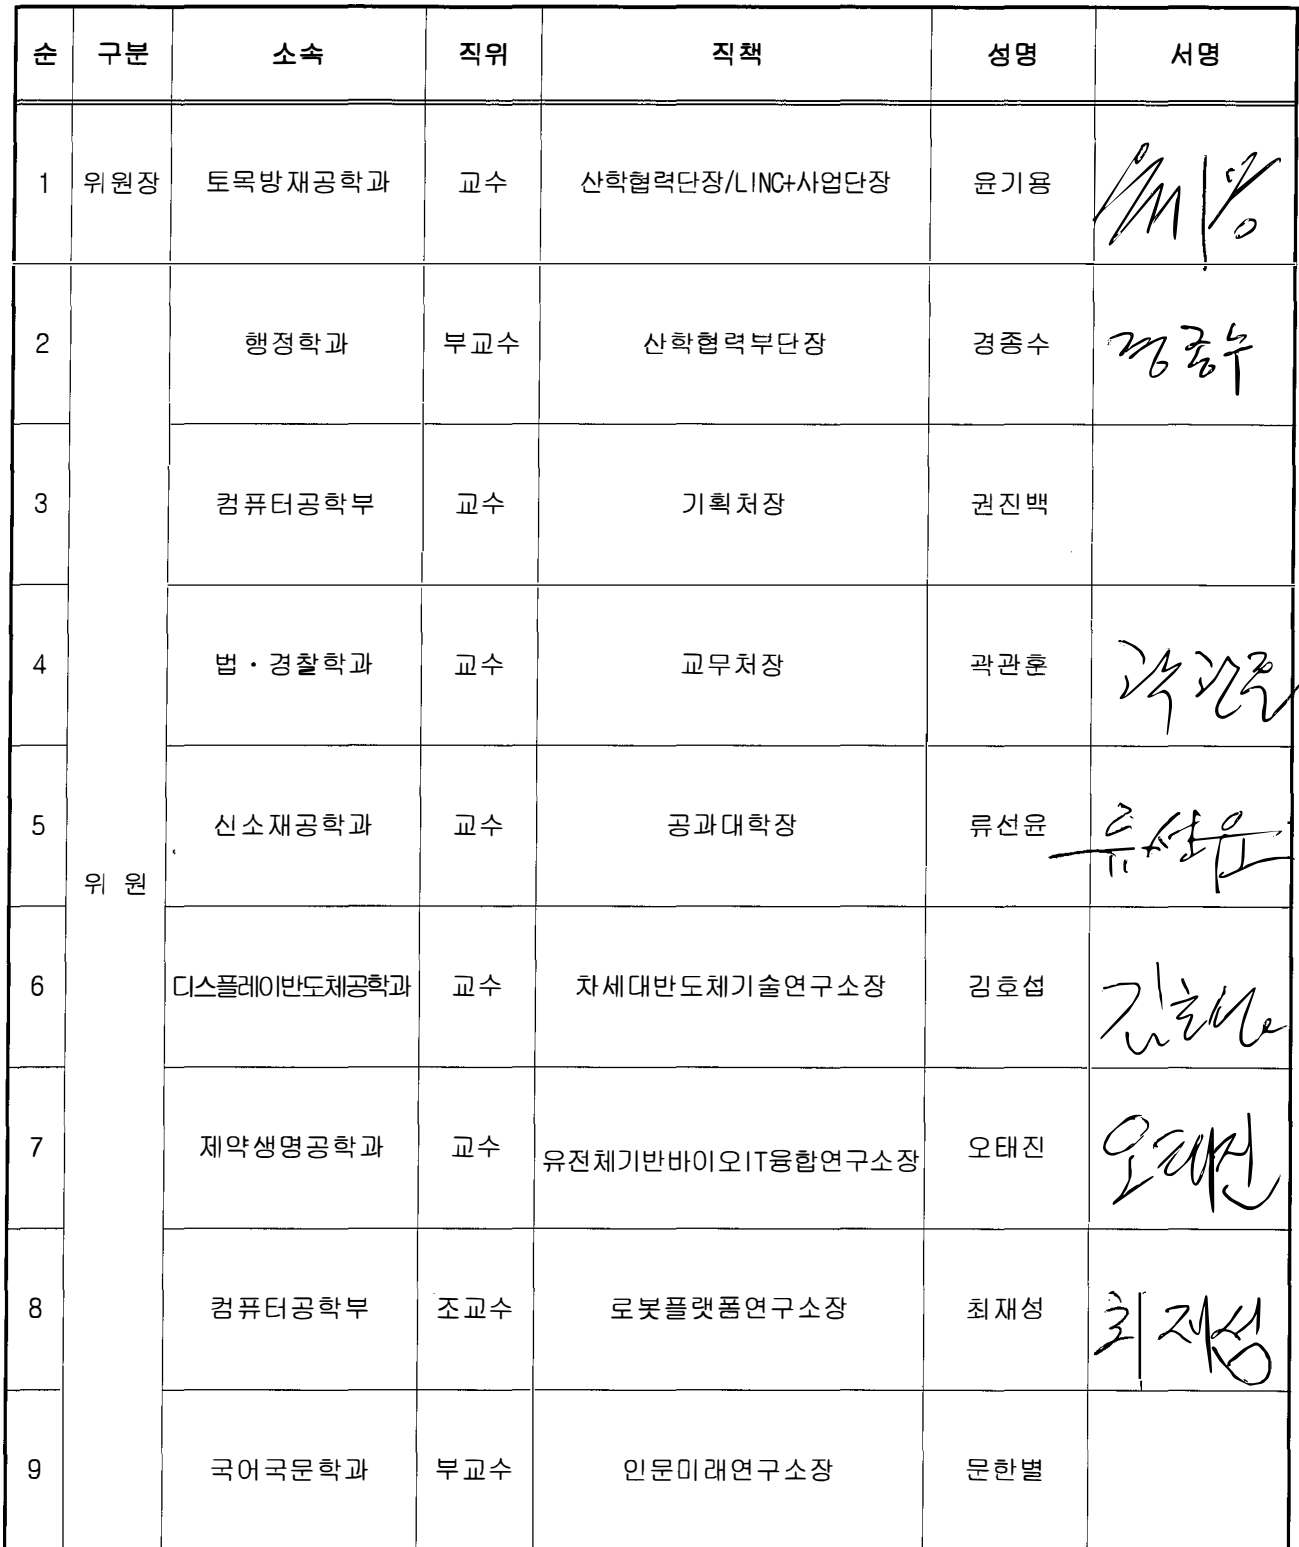 순 구분 소속 직위 직책 성명 서명
1 위원장 토목방재공학과 교수 산학협력단장/LINC+사업단장 윤기용
2 행정학과 부교수 산학협력부단장 경종수 경종수
3 컴퓨터공학부 교수 기획처장 권진백
4 법·경찰학과 교수 교무처장 곽관훈 곽관훈
5 신소재공학과 교수 공과대학장 류선윤 류선윤
위 원
6 디스플레이반도체공학과 교수 차세대반도체기술연구소장 김호섭
7 제약생명공학과 교수 유전체기반바이오IT융합연구소장 오태진 오태진
8 컴퓨터공학부 조교수 로봇플랫폼연구소장 최재성 최재성
9 국어국문학과 부교수 인문미래연구소장 문한별